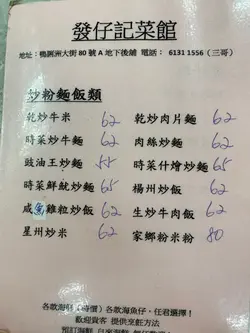 發仔記菜館
地址：鴨脷洲大街 80 號 A 地下後舖 電話： 6131 1556（三哥）
炒粉麵飯類
乾炒牛米 62 乾炒肉片麵 62
時菜炒牛麵 62 肉絲炒麵 62
豉油王炒麵 55 時菜什燴炒麵 65
時菜鮮魷炒麵 65 楊州炒飯 62
咸魚雞粒炒飯 62 生炒牛肉飯 62
星州炒米 62 家鄉粉米粉 80
各款海鮮（時價）各款海魚仔，任君選擇！
歡迎貴客 提供烹飪方法